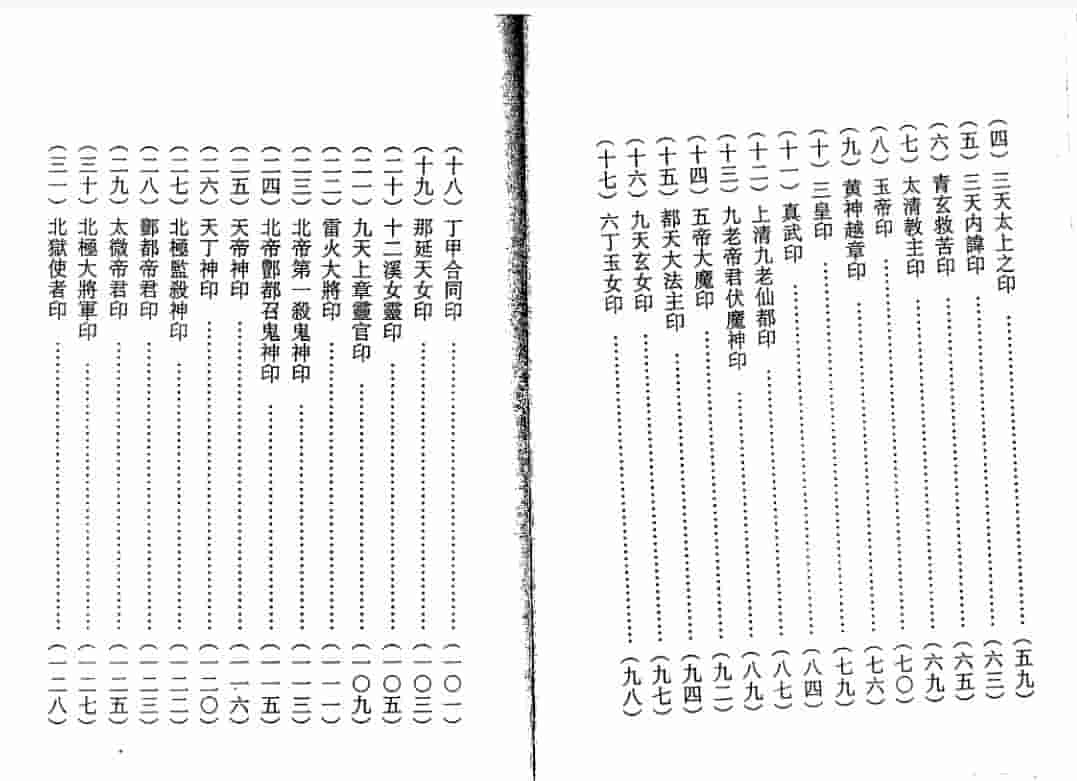 (四) 三天太上之印……(五九)
(五) 三天內諱印……(六三)
(六) 青玄救苦印……(六五)
(七) 太清教主印……(六九)
(八) 玉帝印……(七〇)
(九) 黃神越章印……(七六)
(十) 三皇印……(七九)
(十一) 真武印……(八四)
(十二) 上清九老仙都印……(八七)
(十三) 九老帝君伏魔神印……(八九)
(十四) 五帝大魔印……(九二)
(十五) 都天大法主印……(九四)
(十六) 九天玄女印……(九七)
(十七) 六丁玉女印……(九八)
(十八) 丁甲合同印……(一〇一)
(十九) 那延天女印……(一〇三)
(二十) 十二溪女靈印……(一〇五)
(二一) 九天上章靈官印……(一〇九)
(二二) 雷火大將印……(一一一)
(二三) 北帝第一殺鬼神印……(一一三)
(二四) 北帝酆都召鬼神印……(一一五)
(二五) 天帝神印……(一一六)
(二六) 天丁神印……(一二〇)
(二七) 北極監殺神印……(一二二)
(二八) 酆都帝君印……(一二三)
(二九) 太微帝君印……(一二五)
(三十) 北極大將軍印……(一二七)
(三一) 北獄使者印……(一二八)